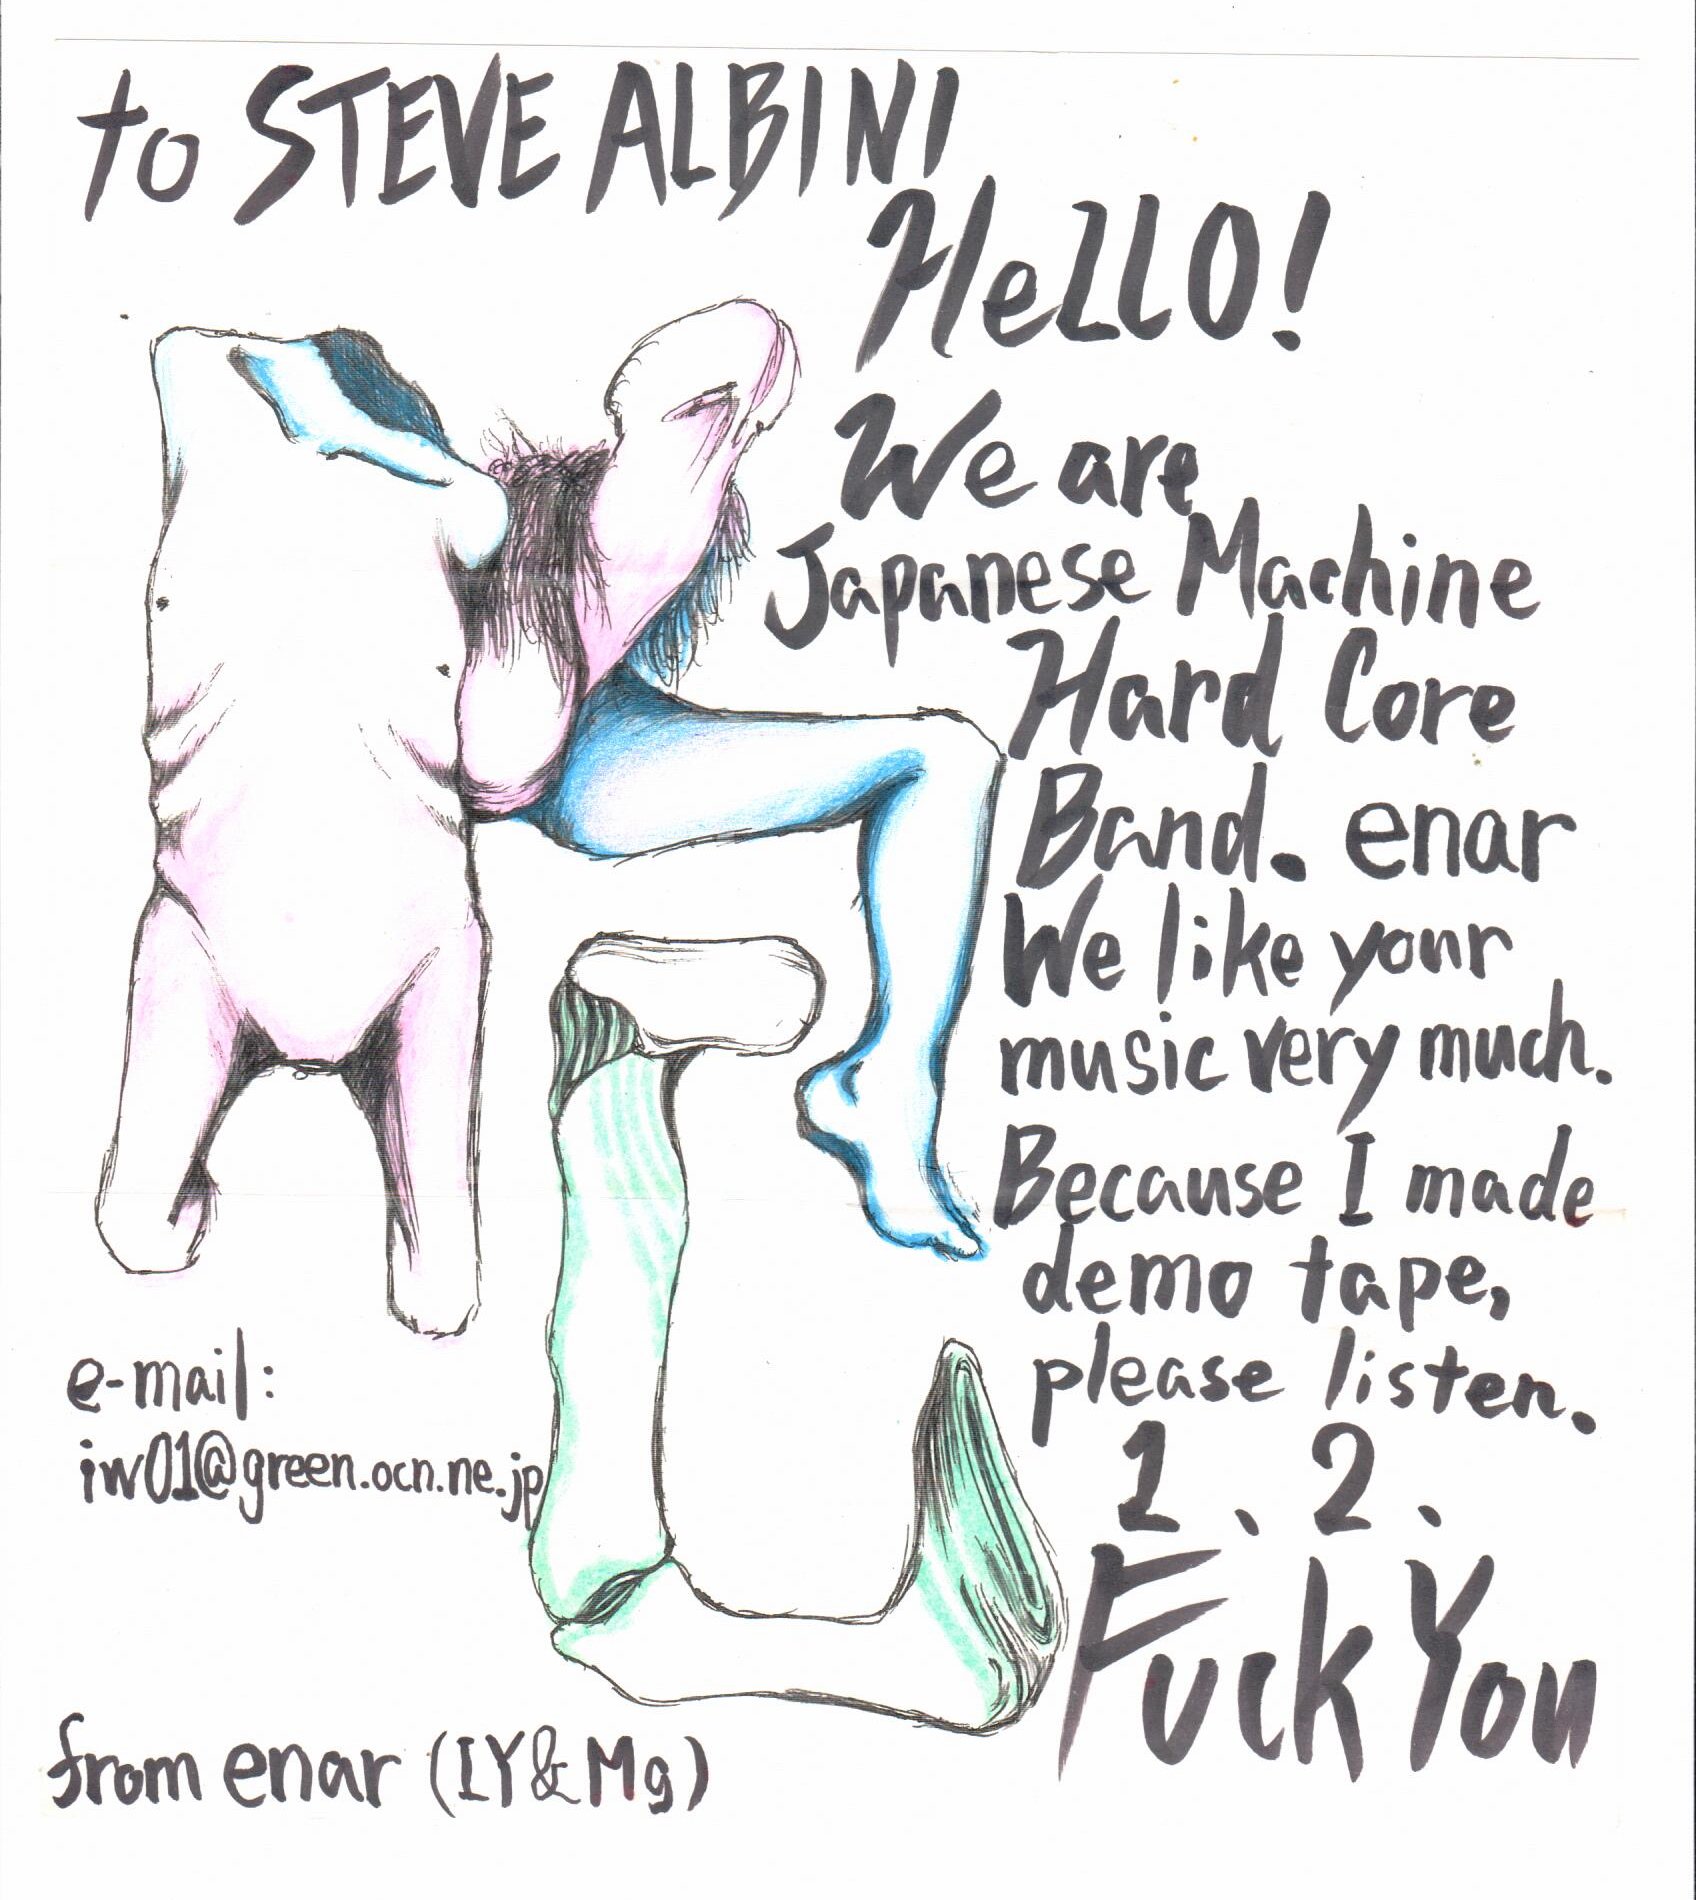 to STEVE ALBINI
HeLLO!
We are
Japanese Machine
Hard Core
Band. enar
We like your
music very much.
Because I made
demo tape,
please listen.
1、2、
Fuck You
e-mail:
iw01@green.ocn.ne.jp
from enar (IY&Mg)